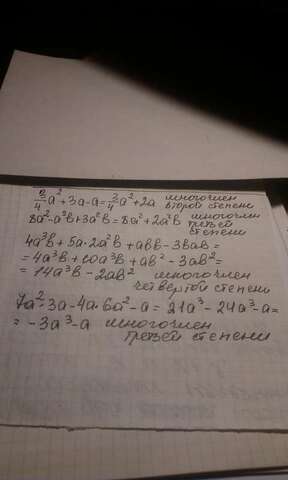 3/4 a² + 3a - a = 3/4 a² + 2a многочлен
второй степени
8a² - a²b + 3a²b = 8a² + 2a²b многочлен
третьей
степени
4a³b + 5a · 2a²b + abb - 3bab =
= 4a³b + 10a³b + ab² - 3ab² =
= 14a³b - 2ab² многочлен
четвертой степени
7a² 3a - 4a · 6a² - a = 21a³ - 24a³ - a =
= -3a³ - a многочлен
третьей степени